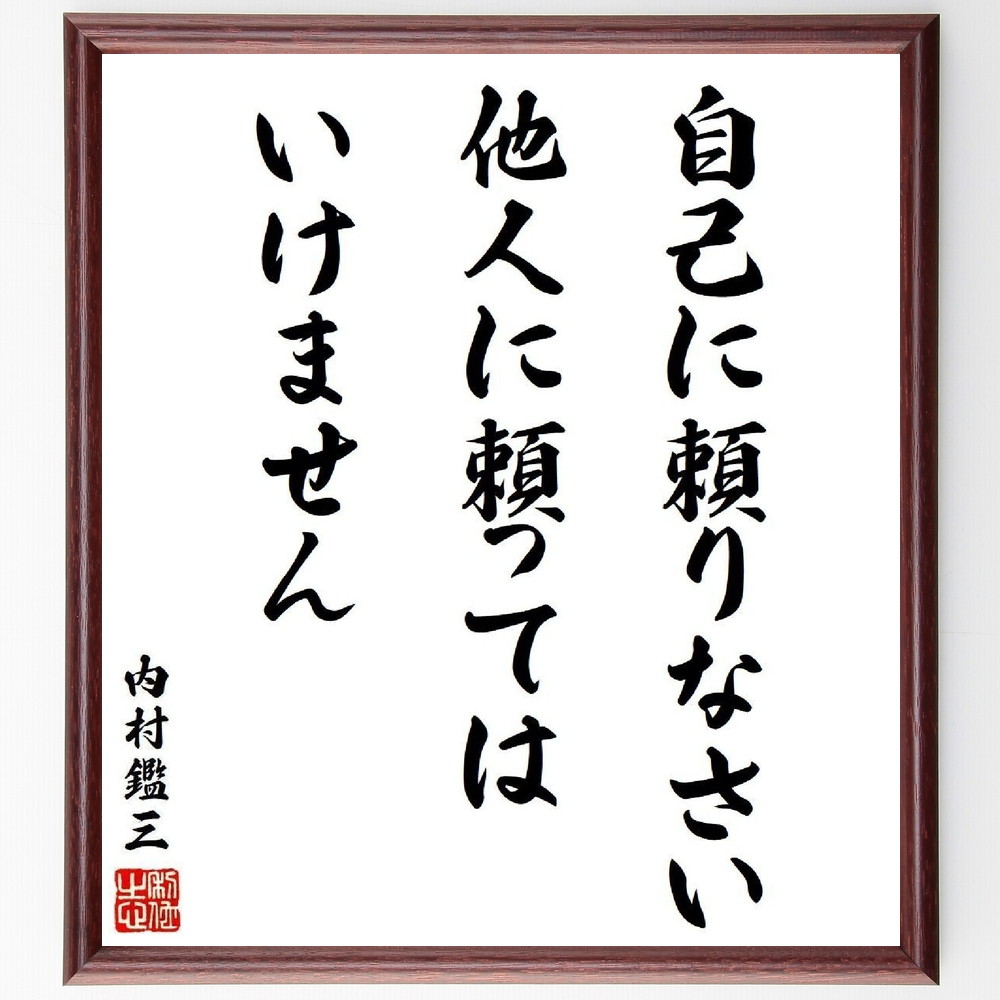 自己に頼りなさい
他人に頼っては
いけません
内村鑑三